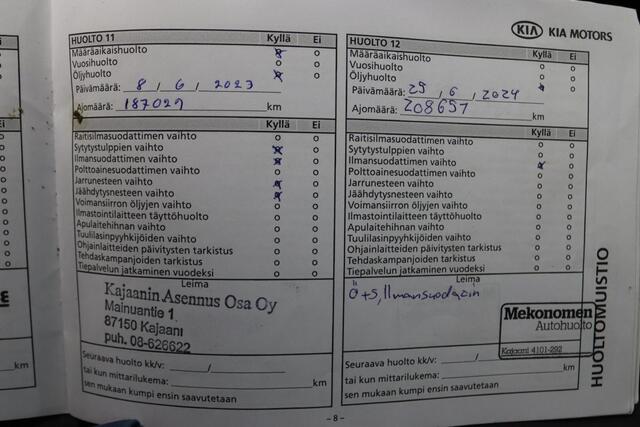 KIA KIA MOTORS
HUOLTO 11 Kyllä Ei
Määräaikaishuolto
Vuosihuolto
Öljyhuolto
Päivämäärä: 8 / 6 / 2023
Ajomäärä: 187029 km
Kyllä Ei
Raitisilmasuodattimen vaihto
Sytytystulppien vaihto
Ilmansuodattimen vaihto
Polttoainesuodattimen vaihto
Jarrunesteen vaihto
Jäähdytysnesteen vaihto
Voimansiirron öljyjen vaihto
Ilmastointilaitteen täyttöhuolto
Apulaitehihnan vaihto
Tuulilasinpyyhkijöiden vaihto
Ohjainlaitteiden päivitysten tarkistus
Tehdaskampanjoiden tarkistus
Tiepalvelun jatkaminen vuodeksi
Leima
Kajaanin Asennus Osa Oy
Mainuantie 1
87150 Kajaani
puh. 08-626622
Seuraava huolto kk/v: /
tai kun mittarilukema: km
sen mukaan kumpi ensin saavutetaan
HUOLTO 12 Kyllä Ei
Määräaikaishuolto
Vuosihuolto
Öljyhuolto
Päivämäärä: 25 / 6 / 2024
Ajomäärä: 208657 km
Kyllä Ei
Raitisilmasuodattimen vaihto
Sytytystulppien vaihto
Ilmansuodattimen vaihto
Polttoainesuodattimen vaihto
Jarrunesteen vaihto
Jäähdytysnesteen vaihto
Voimansiirron öljyjen vaihto
Ilmastointilaitteen täyttöhuolto
Apulaitehihnan vaihto
Tuulilasinpyyhkijöiden vaihto
Ohjainlaitteiden päivitysten tarkistus
Tehdaskampanjoiden tarkistus
Tiepalvelun jatkaminen vuodeksi
Leima
Ö+S, Ilmansuodatin
Mekonomen
Autohuolto
Kajaani 4101-292
Seuraava huolto kk/v: /
tai kun mittarilukema: km
sen mukaan kumpi ensin saavutetaan
HUOLTOMUISTIO
- 8 -
km